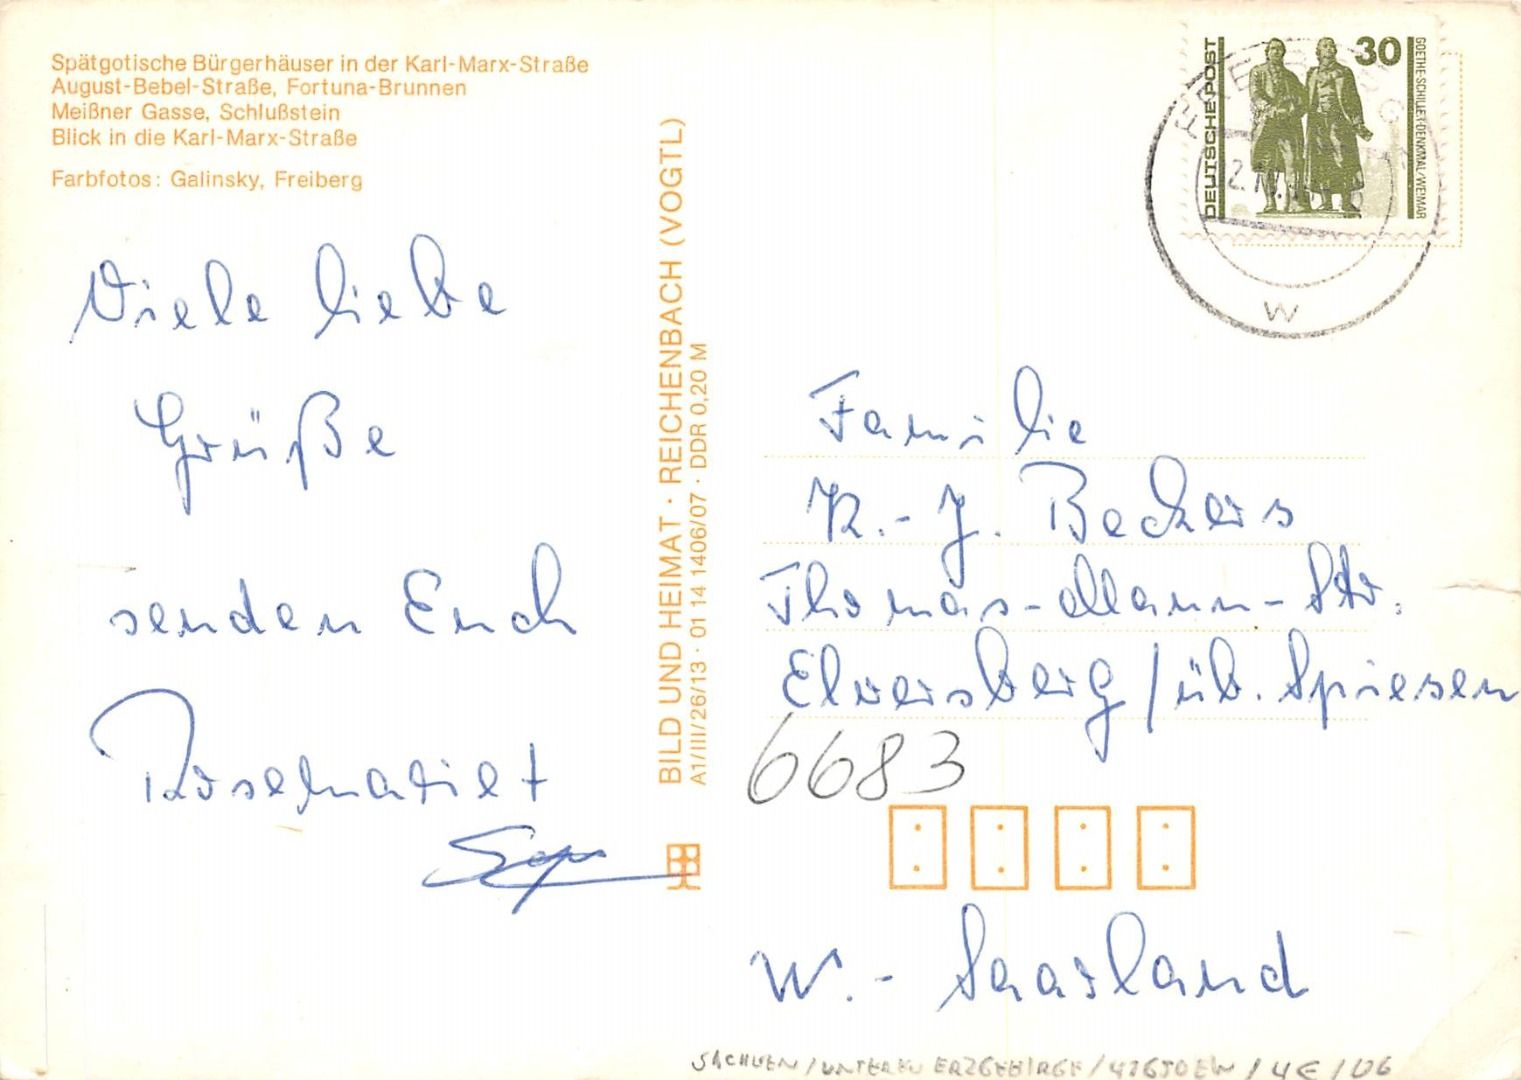 Spätgotische Bürgerhäuser in der Karl-Marx-Straße
August-Bebel-Straße, Fortuna-Brunnen
Meißner Gasse, Schlußstein
Blick in die Karl-Marx-Straße
Farbfotos: Galinsky, Freiberg
Viele liebe
Grüße
senden Euch
BILD UND HEIMAT · REICHENBACH (VOGTL)
A1/III/26/13 · 01 14 1406/07 · DDR 0,20 M
DEUTSCHE POST
30
GOETHE-SCHILLER-DENKMAL/WEIMAR
FREIBERG
W
Familie
K.-J. Beckers
Thomas-Mann-Str.
Elversberg/üb. Spiesen
6683
W.- Saarland
SACHSEN/UNTERES ERZGEBIRGE/ /4€/06